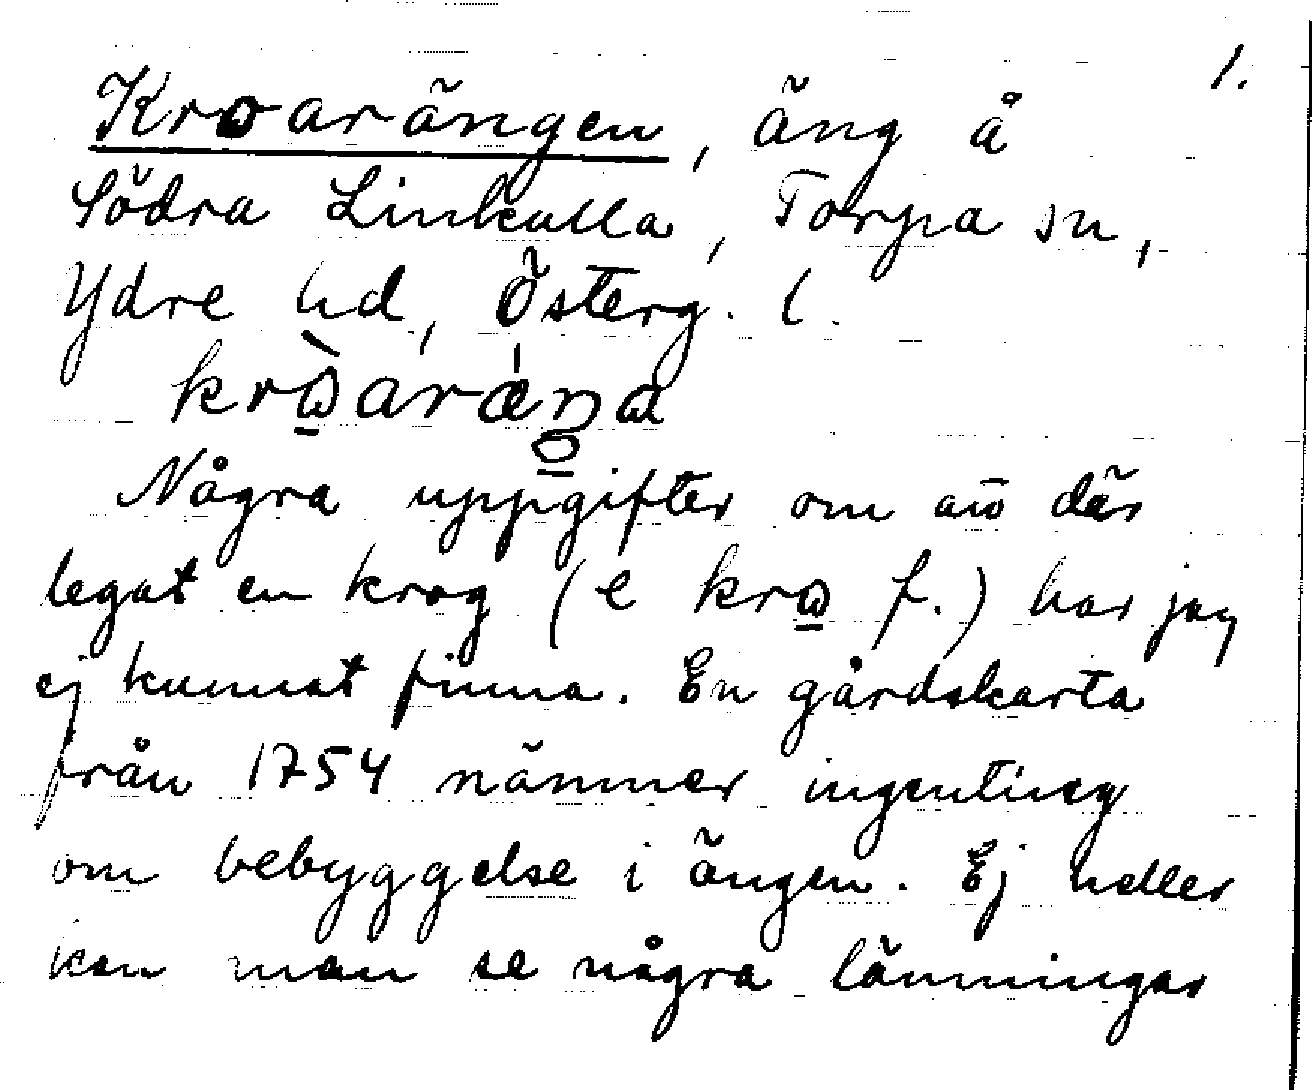 1.
Kroarängen, äng å
Södra Linkulla, Torpa sn,
Ydre hd, Österg. l.
krωaræŋa
Några uppgifter om att där
legat en krog (e krω f.) har jag
ej kunnat finna. En gårdskarta
från 1754 nämner ingenting
om bebyggelse i ängen. Ej heller
kan man se några lämningar